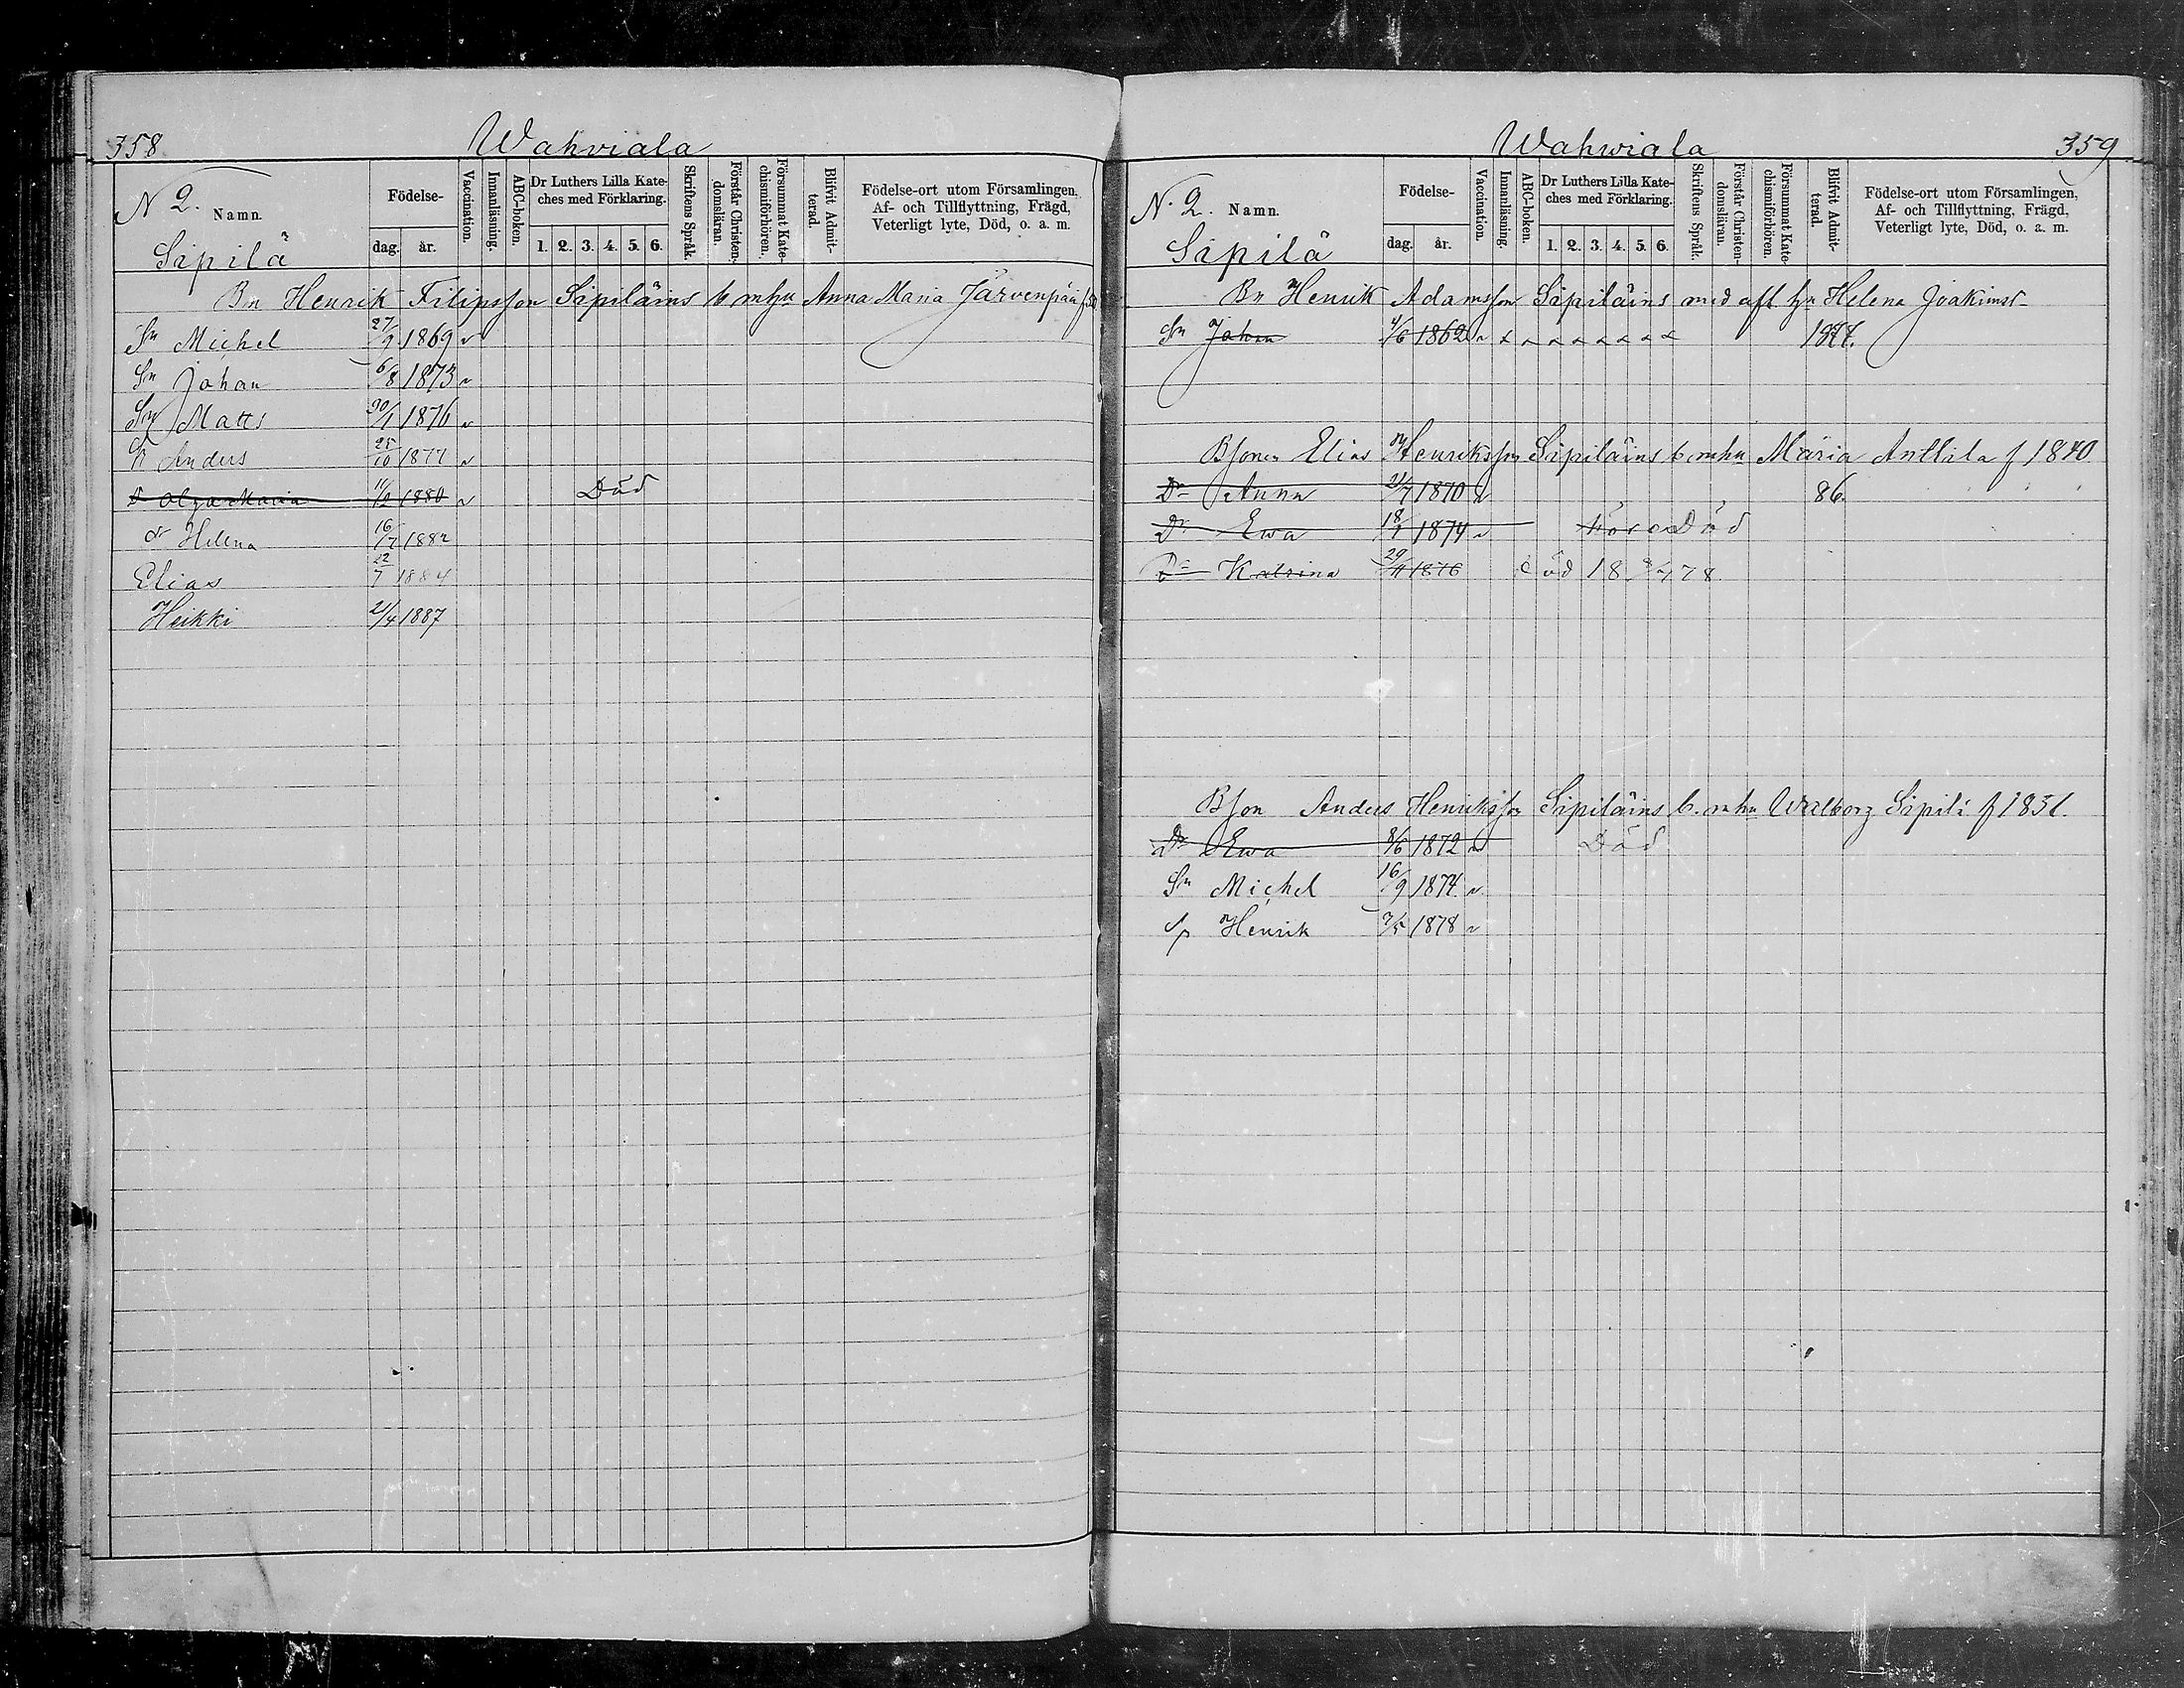 358
Wahviala
N 2.
Namn.
Sipilä
Födelse-
dag. år.
Vaccination.
Innanläsning.
ABC-boken.
Dr Luthers Lilla Kate-
ches med Förklaring.
1. 2. 3. 4. 5. 6.
Skriftens Språk.
Förstår Christen-
domsläran.
Försummat Kate-
chismiförhören.
Blifvit Admit-
terad.
Födelse-ort utom Församlingen,
Af- och Tillflyttning, Frägd,
Veterligt lyte, Död, o. a. m.
Bn Henrik Filipsson Sipiläins b mhu Anna Maria Järvenpää
Sn Michel 27/9 1869
Sn Johan 6/8 1873
Sn Matts 30/1 1876
Sn Anders 25/10 1877
D Olga Maria 11/2 1880 Död
dr Helena 16/7 1882
Elias 22/7 1884
Heikki 21/4 1887
Wahwiala
359
N. 2.
Namn.
Sipilä
Födelse-
dag. år.
Vaccination.
Innanläsning.
ABC-boken.
Dr Luthers Lilla Kate-
ches med Förklaring.
1. 2. 3. 4. 5. 6.
Skriftens Språk.
Förstår Christen-
domsläran.
Försummat Kate-
chismiförhören.
Blifvit Admit-
terad.
Födelse-ort utom Församlingen,
Af- och Tillflyttning, Frägd,
Veterligt lyte, Död, o. a. m.
Bn Henrik Adamsson Sipiläins med afl hu Helena Joakimsd
Sn Johan 4/6 1862
Bsonen Elias Henriksson Sipiläins b mhu Maria Anttila f 1840
Dr Anna 21/7 1870 86.
Dr Ewa 18/1 1874 Död
Dr Katrina 29/11 1876 död 18 78
Bson Anders Henriksson Sipiläins b. mhu Walborg Sipilä f 1851.
Dr Ewa 8/6 1872 Död
Sn Michel 16/9 1874
Sn Henrik 7/5 1878